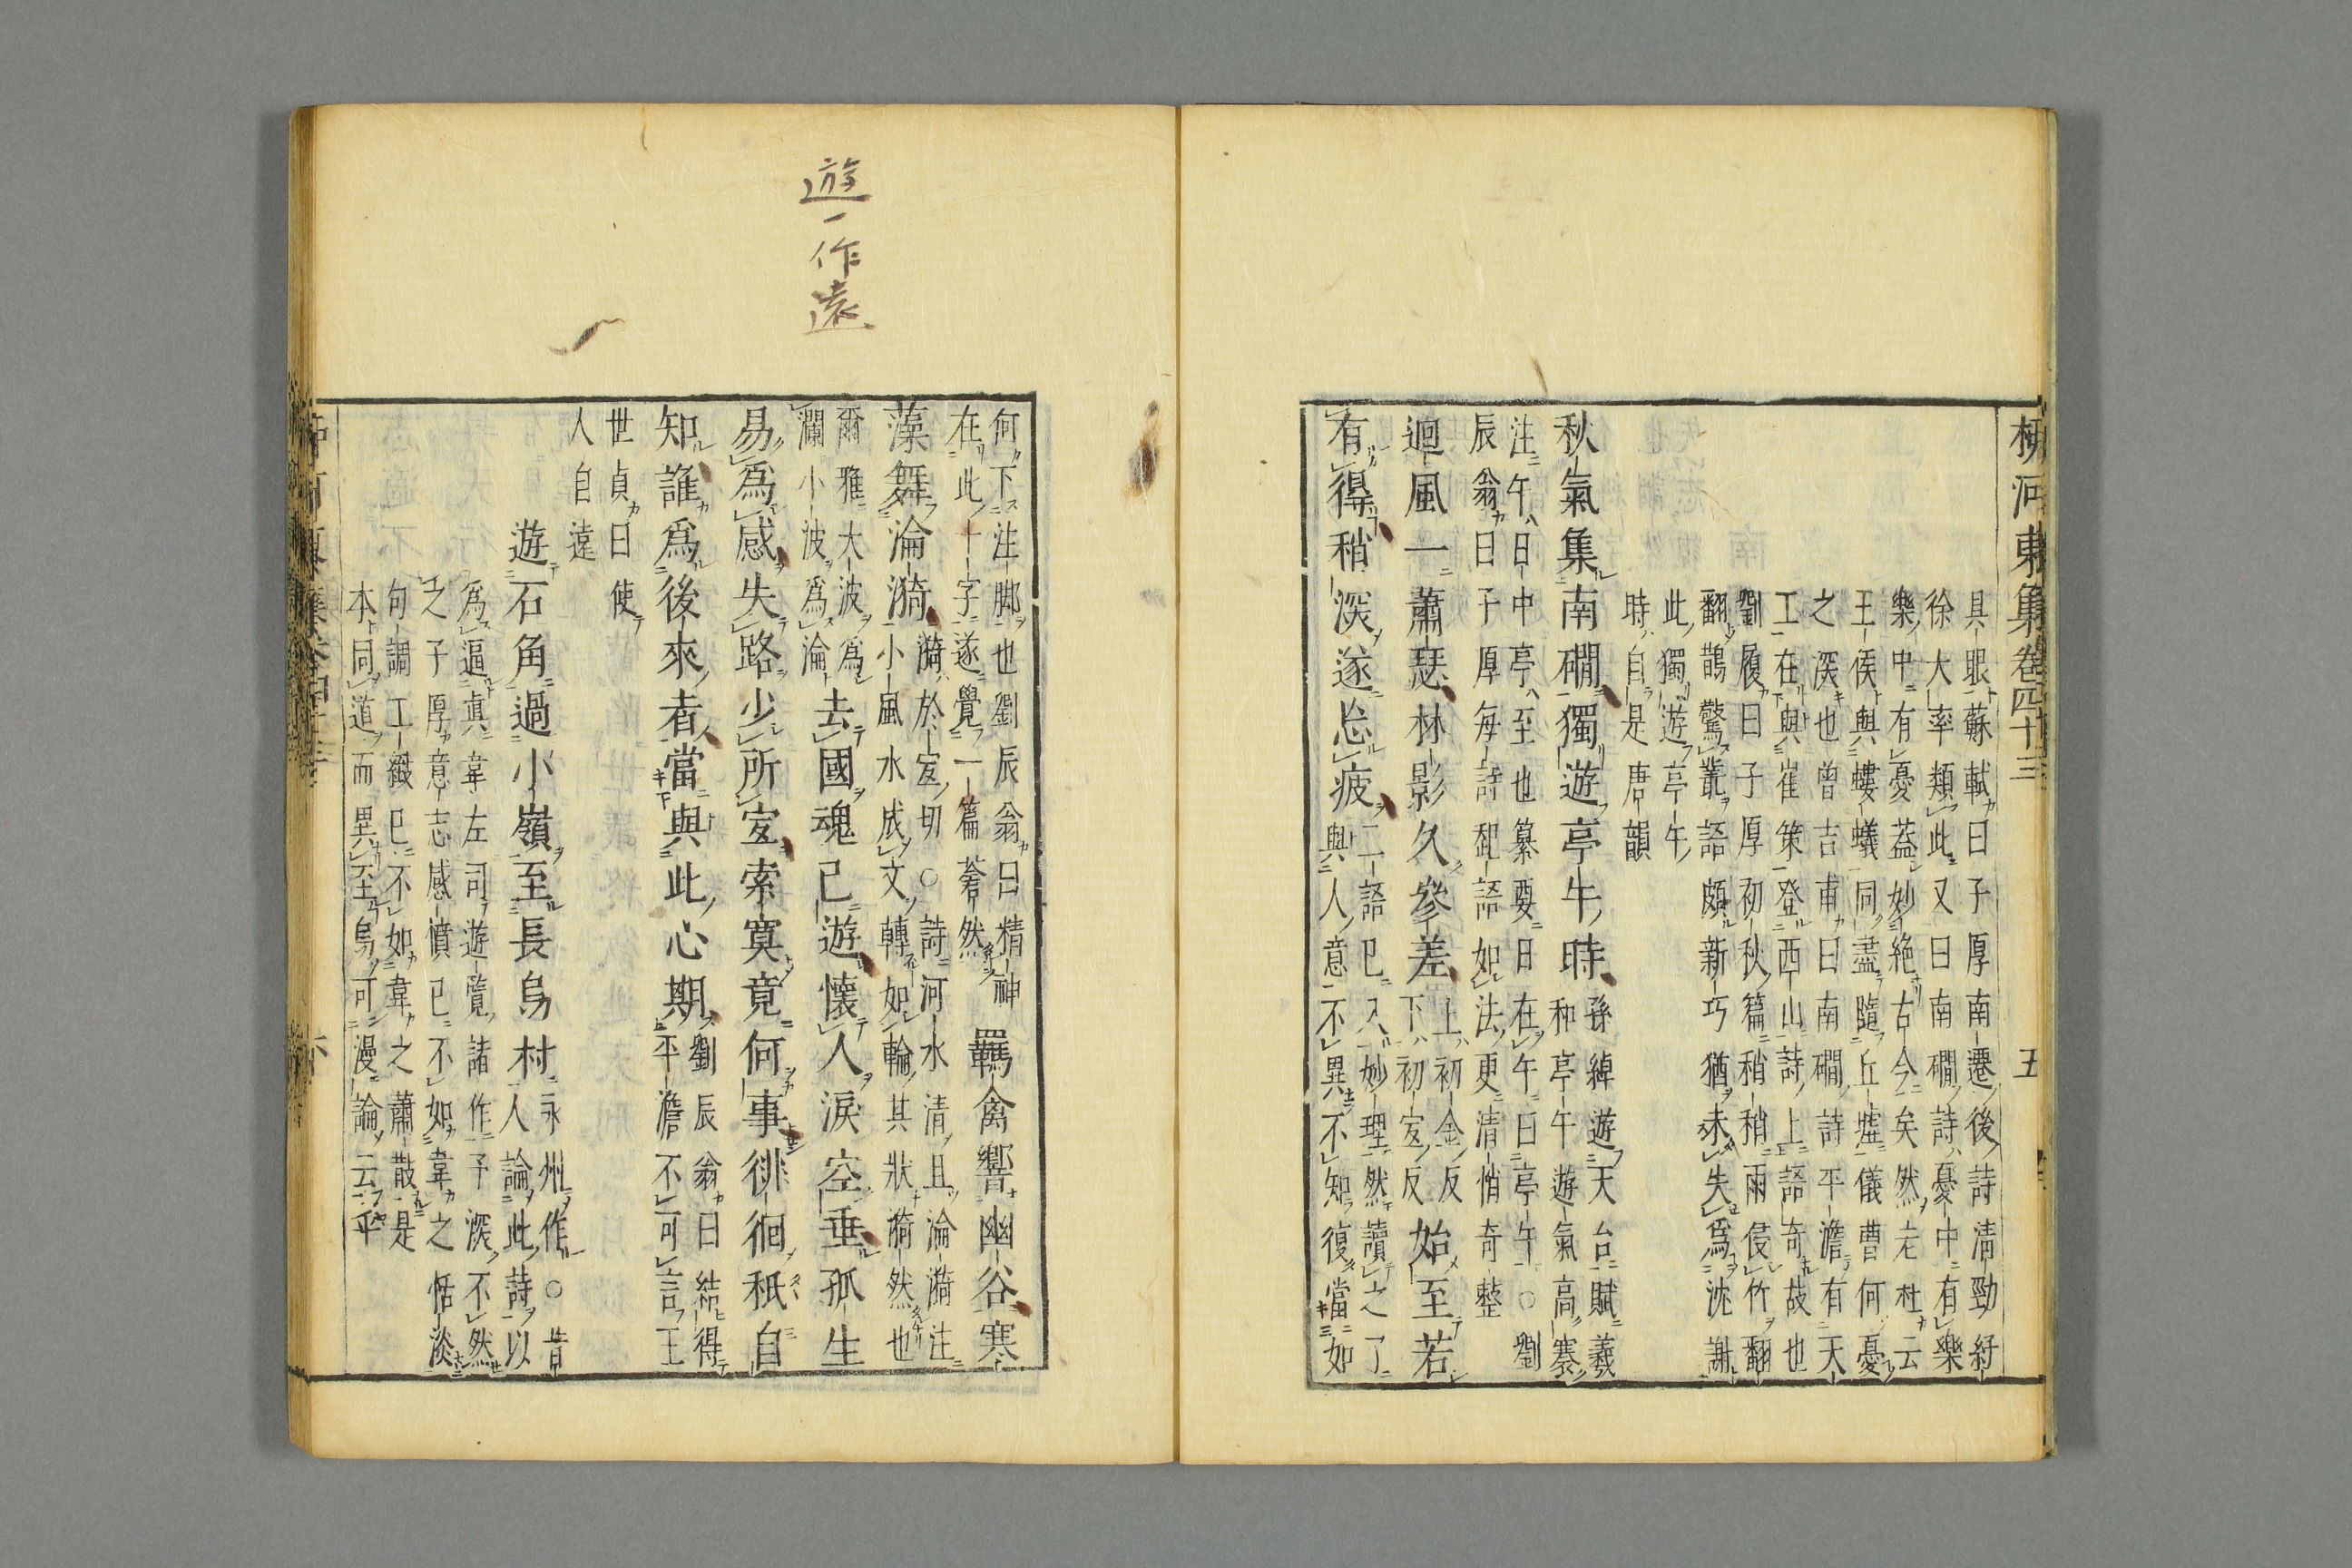 柳河東集卷四十三 五
具眼蘇軾曰子厚南遷後詩清勁紆
徐大率類此又曰南磵詩憂中有樂
樂中有憂蓋妙絕古今矣然老杜云
王侯與螻蟻同盡隨丘墟儀曹何憂
之深也曾吉甫曰南磵詩平澹有天
工在與崔策登西山詩上語奇故也
劉履曰子厚初秋篇稍稍雨侵竹翻
翻鵲驚叢語頗新巧猶未失爲沈謝
此獨遊亭午
時自是唐韻
秋氣集南磵獨遊亭午時
孫綽遊天台賦羲
和亭午遊氣高褰
注午日中亭至也纂要日在午曰亭午○劉
辰翁曰子厚每詩起語如法更清悄奇整
迴風一蕭瑟林影久參差
上初金反
下初宜反
始至若
有得稍深遂忘疲
二語已入妙理然讀之了
與人意不異不知復當如
何下注脚也劉辰翁曰精神
在此十字遂覺一篇蒼然
羈禽響幽谷寒
藻舞淪漪
漪於宜切○詩河水清且淪漪注
小風水成文轉如輪其狀漪然也
爾雅大波爲
瀾小波爲淪
去國魂已遊懷人淚空垂孤生
易爲感失路少所宜索寞竟何事徘徊秖自
知誰爲後來者當與此心期
劉辰翁曰結得
平澹不可言王
世貞曰使
人自遠
遊石角過小嶺至長烏村
永州作○昔
人論此詩以
爲逼真韋左司遊覽諸作予深不然
之子厚意志感憤已不如韋之恬淡
句調工緻已不如韋之蕭散是
本同道而異至烏可漫論云乎
遊一作遠
六